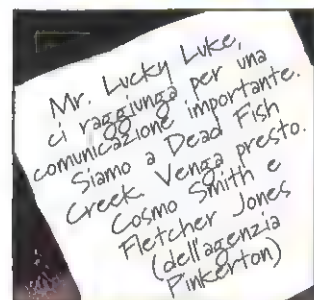 Mr. Lucky Luke,
ci raggiunga per una
comunicazione importante.
Siamo a Dead Fish
Creek. Venga presto.
Cosmo Smith e
Fletcher Jones
(dell'agenzia
Pinkerton)